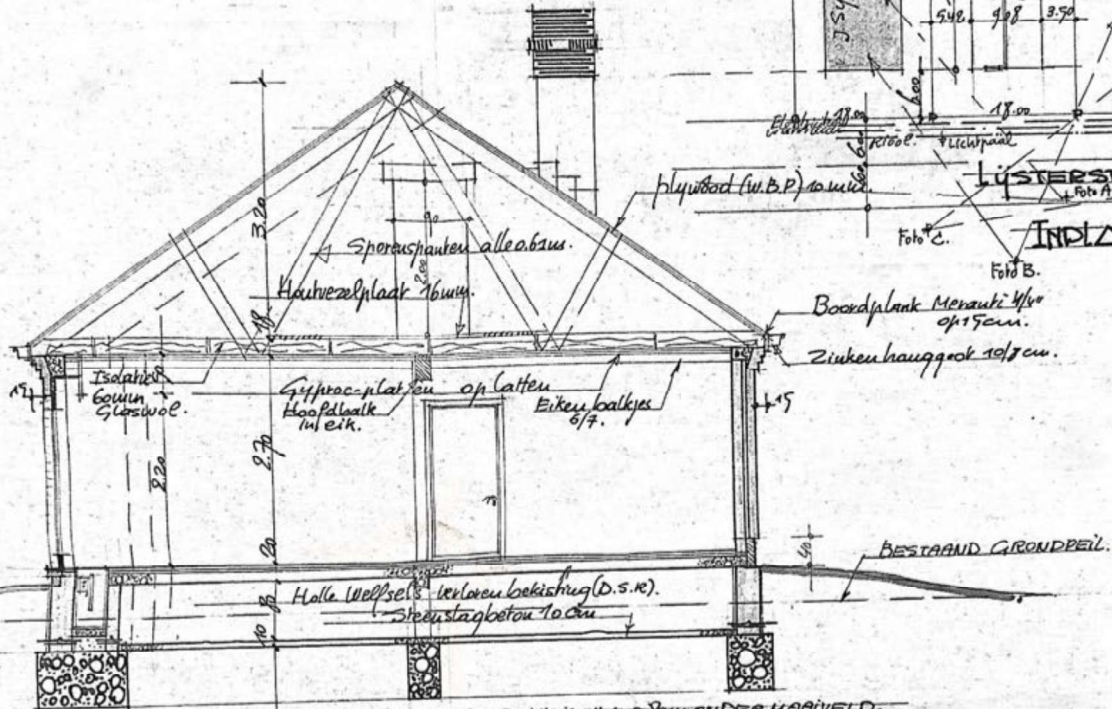 5.48
9.08
3.50
6.00
18.00
18.00
Riool.
Lichtpaal
6.00
Foto A
Foto C.
Foto B.
plywood (W.B.P) 10 mm.
3.20
90
Sporenspanten alle 0.61m.
2.00
Houtvezelplaat 16mm.
18
Boordplank Meranti
op 15cm.
Zinken hanggoot 10/8 cm.
Isolatie
60mm
Glaswol.
Gyproc-platen op latten
Hoofdbalk
in eik.
Eiken balkjes
6/7.
15
15
2.70
2.20
20
40
BESTAAND GRONDPEIL.
Holle Welfsels verloren bekisting (D.S.K).
Steenslagbeton 10 cm
10